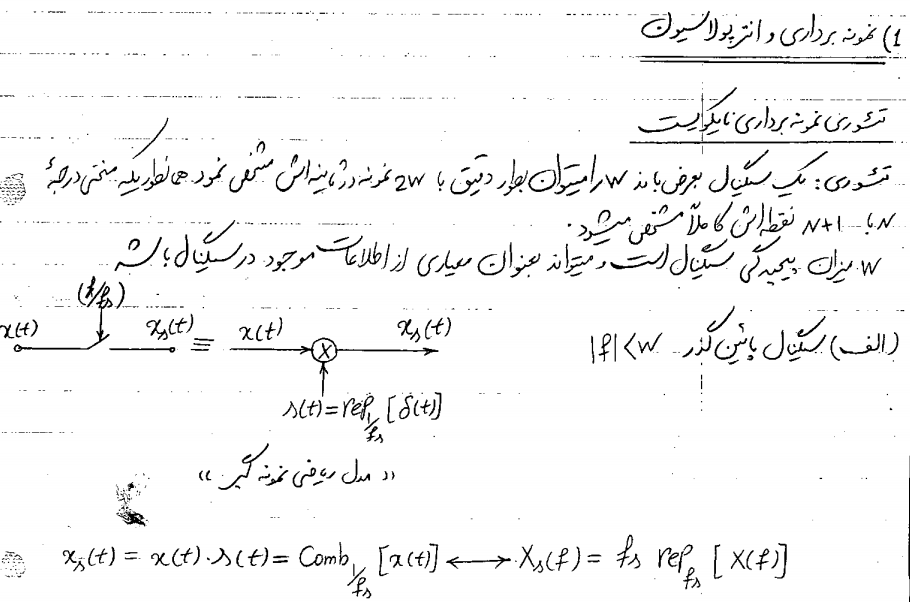 1) نمونه برداری و انترپولاسیون
تئوری نمونه برداری نایکوئیست
تئوری: یک سیگنال بعرض باند W را میتوان بطور دقیق با 2W نمونه در ثانیه اش مشخص نمود همانطوریکه منحنی درجهٔ
N با N+1 نقطه اش کاملاً مشخص میشود.
W میزان پیچیدگی سیگنال است و میتواند بعنوان معیاری از اطلاعات موجود در سیگنال باشد
(الف) سیگنال پائین گذر |f|<W
(1/fs)
x(t) xs(t) ≡ x(t) X xs(t)
s(t)=rep1/fs [δ(t)]
«مدل ریاضی نمونه گیر»
xs(t) = x(t).s(t) = Comb1/fs [x(t)] ⟷ Xs(f) = fs repfs [X(f)]